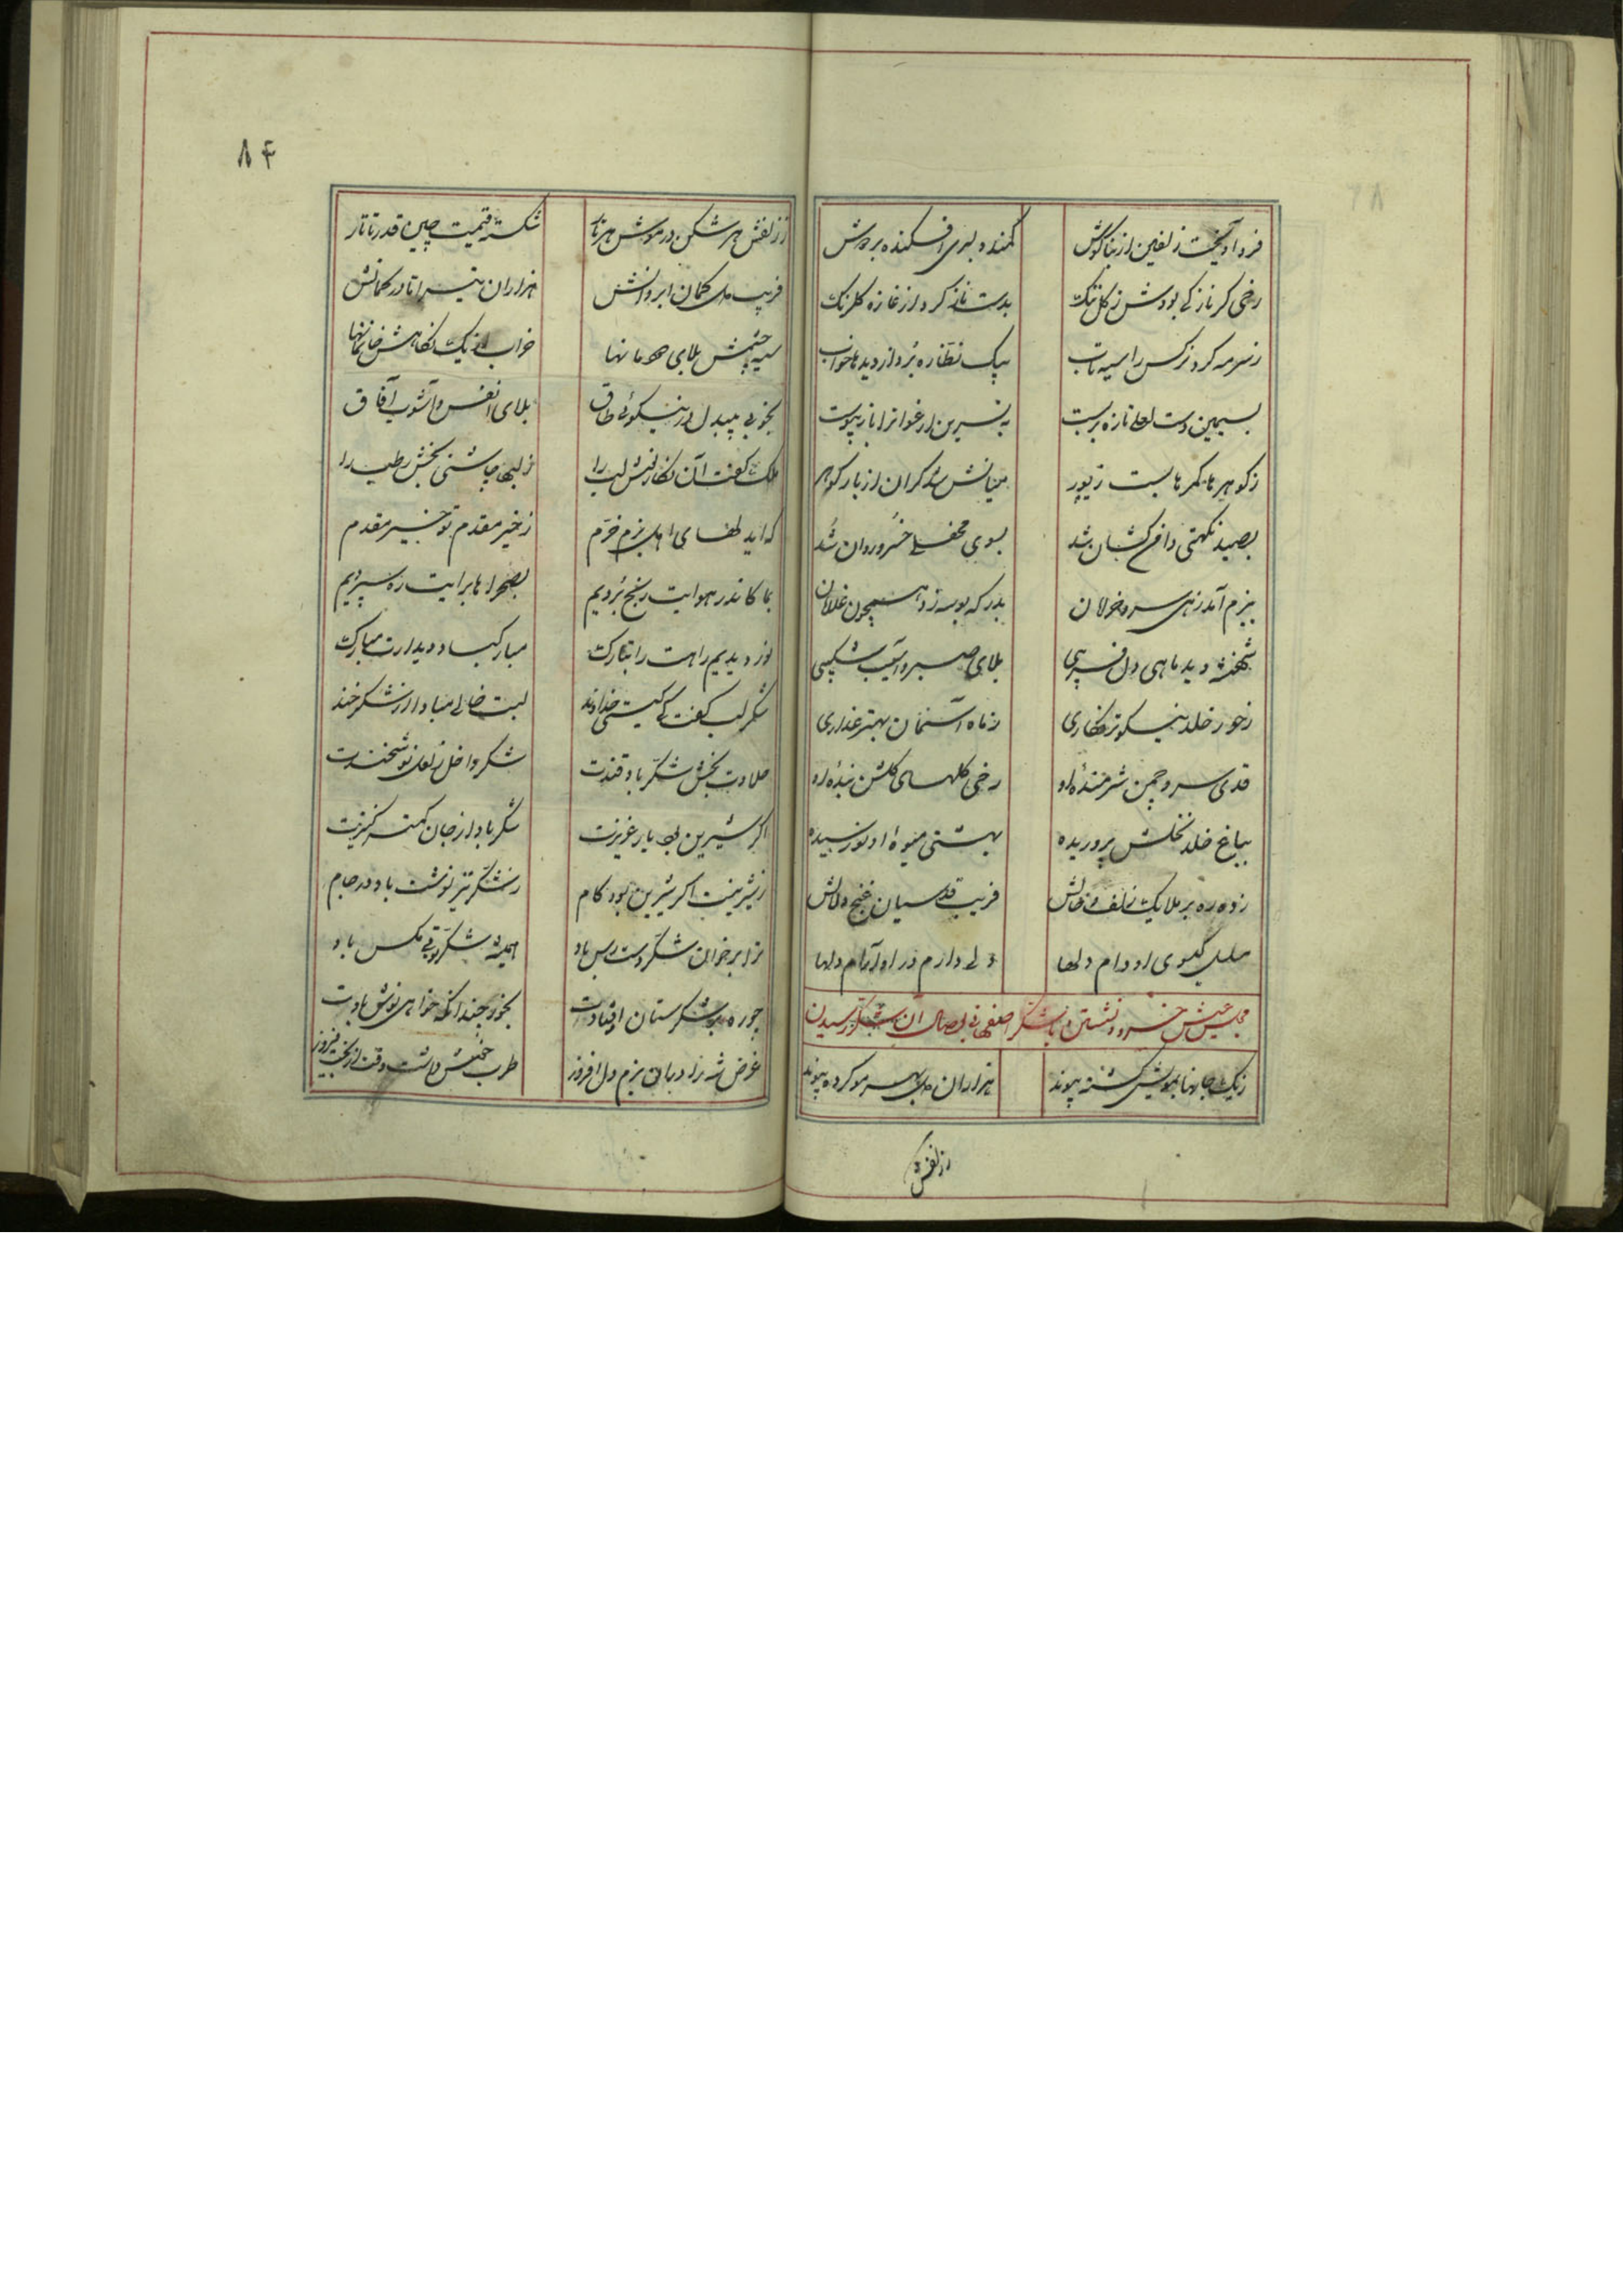 فرو آویخت زلفین از بناگوش کمند دلبری افکنده بر دوش
رخی کز نازکی بودش ز گل ننگ بدست ناز کرد از غازه گلرنگ
ز سرمه کرد نرکس را سیه تاب بیک نظاره برد از دیدها خواب
بسیمین دست تازه بربست به نسرین ارغوانرا باز پیوست
ز کوهرها کمرها بست زیور میانش شد کران از بار کوهر
بصید نکهتی دامن کشان شد بسوی محفل خسرو روان شد
ببزم آمد زهی سرو خرامان بدرکه بوسه زد همچون غلامان
شهنشه دید ماهی دل فریبی بلای صبر و آشوب شکیبی
ز حور خلد نیکوتر نکاری ز ماه آسمان بهتر عذاری
قدی سرو چمن شرمندهٔ او رخی کلهای کلشن بندهٔ او
بباغ خلد نخلش پروریده بهشتی میوهٔ او نورسیده
زده ره بر ملایک زلف و خالش فریب قدسیان غنج و دلالش
کیسوی او دام دلها دلارام در او آرام دلها
مجلس عیش خسرو و نشستن با شکر اصفهانی بوصال آن شکر رسیدن
ز یک جانها بمویش کشته پیوند هزاران دل بهر مو کرده پیوند
ززلفش
۸۴
ززلفش هر شکن در موش هر تار شکسته قیمت چین قدر تاتار
فریب دل کمان ابروانش هزاران تیر تا در کمانش
سیه چشمش بلای دودمانها خراب از یک نکاهش خانمانها
بخوبی بیبدل در نیکوئی طاق بلای انفس و آشوب آفاق
ملک کفت آن نکار نوش لب را ز لبها چاشنی بخش رطب را
که اید لطفهای اهل بزم خرم ز خیر مقدم تو خیر مقدم
بما کاندر هوایت رنج بردیم بصحراها برایت ره سپردیم
نوردیدیم راهت را تبارک مبارکباد دیدارت مبارک
شکر لب کفت کی کیتی خداوند لبت خالی مباد از شکر خند
حلاوت بخش شکر باد قندت شکر داخل ز لعل نوشخندت
اکر شیرین بود یار عزیزت شکر باد از جان کمتر کنیزت
ز شیرینت اکر شیرین بود کام ز شکر تیز نوشت باد در جام
ترا بر خوان شکر دست رس باد همیشه شکر تو بی مکس باد
چو ره بر شکرستان اوفتادت بخور چندانکه خواهی نوش بادت
غرض شه زاد با آن بزم دل افروز طرب خوش داشت وقت از بخت فیروز